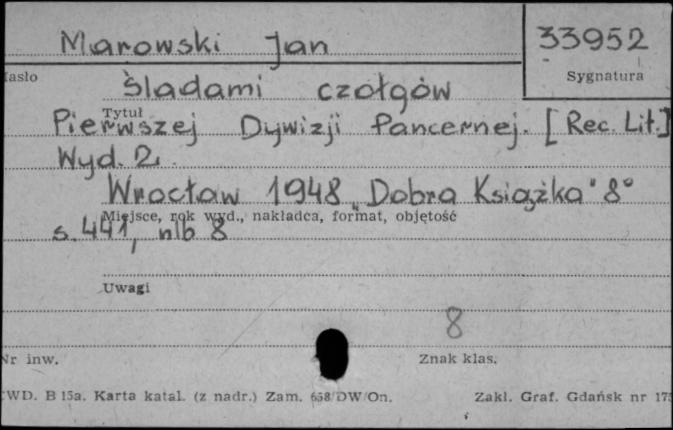 Marowski Jan
33952
Hasło
Sygnatura
Śladami czołgów
Tytuł
Pierwszej Dywizji Pancernej. [Rec. Lit.]
Wyd. 2.
Wrocław 1948 „Dobra Książka" 8°
Miejsce, rok wyd., nakładca, format, objętość
s. 441, nlb 8
Uwagi
8
Nr inw.
Znak klas.
CWD. B 15a. Karta katal. (z nadr.) Zam. 658/DW/On.
Zakł. Graf. Gdańsk nr 175